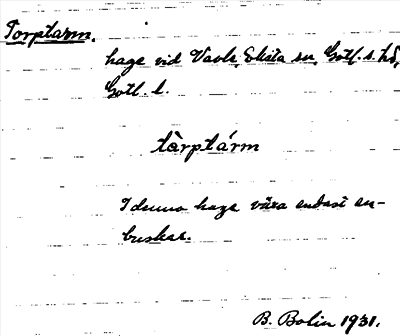 Torptarm.
hage vid Vavle, Eksta sn, Gotl. s. hd,
Gotl. l.
tàrptárm
I denna hage växa endast en-
buskar.
B. Bolin 1931.